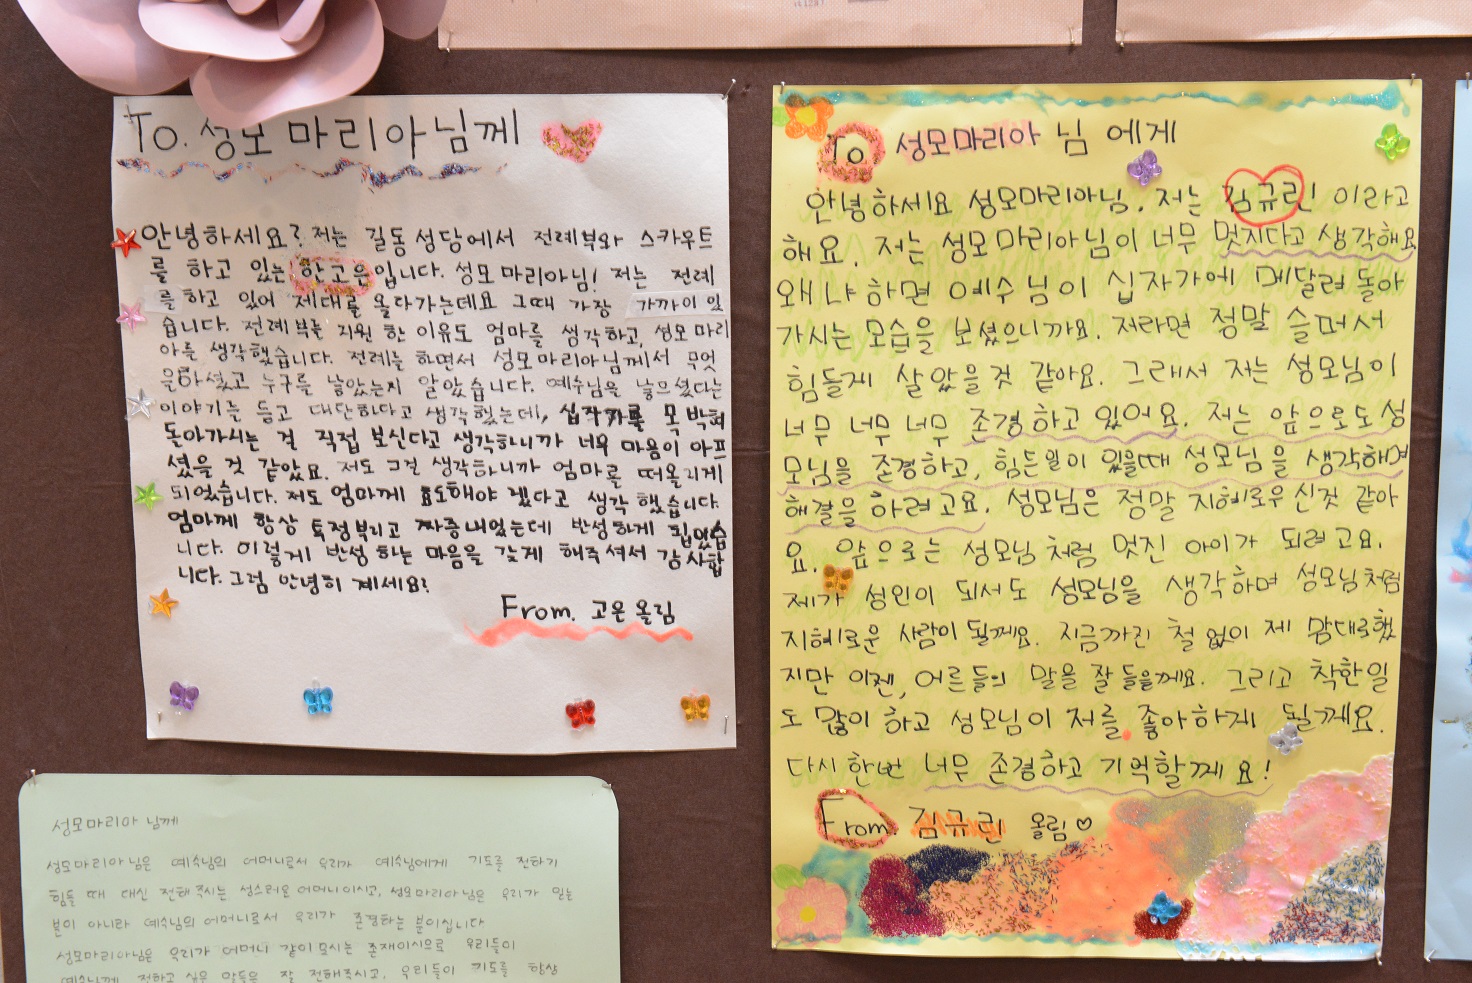 To. 성모 마리아님께
안녕하세요? 저는 길동 성당에서 전례부와 스카우트
를 하고 있는 한고은입니다. 성모 마리아님! 저는 전례
를 하고 있어 제대를 올라가는데요 그때 가장 가까이 있
습니다. 전례부를 지원 한 이유도 엄마를 생각하고, 성모 마리
아를 생각했습니다. 전례를 하면서 성모 마리아님께서 무엇
을 하셨고 누구를 낳았는지 알았습니다. 예수님을 낳으셨다는
이야기를 듣고 대단하다고 생각했는데, 십자가를 못 박혀
돌아가시는 걸 직접 보신다고 생각하니까 너무 마음이 아프
셨을 것 같았요. 저도 그걸 생각하니까 엄마를 떠올리게
되었습니다. 저도 엄마께 효도해야 겠다고 생각 했습니다.
엄마께 항상 투정부리고 짜증내었는데 반성하게 됩었습
니다. 이렇게 반성 하는 마음을 갖게 해주셔서 감사합
니다. 그럼 안녕히 계세요!
From. 고은 올림
To 성모마리아 님 에게
안녕하세요 성모마리아님. 저는 김규린 이라고
해요. 저는 성모 마리아님이 너무 멋지다고 생각해요
왜냐하면 예수님이 십자가에 매달려 돌아
가시는 모습을 보셨으니까요. 저라면 정말 슬퍼서
힘들게 살았을것 같아요. 그래서 저는 성모님이
너무 너무 너무 존경하고 있어요. 저는 앞으로도 성
모님을 존경하고, 힘든일이 있을때 성모님을 생각하며
해결을 하려고요. 성모님은 정말 지혜로우신것 같아
요. 앞으로는 성모님처럼 멋진 아이가 되려고요.
제가 성인이 되서도 성모님을 생각하며 성모님처럼
지혜로운 사람이 될께요. 지금까진 철없이 제 맘대로했
지만 이젠, 어른들의 말을 잘 들을께요. 그리고 착한일
도 많이 하고 성모님이 저를 좋아하게 될께요.
다시 한번 너무 존경하고 기억할께요!
From 김규린 올림♡
성모마리아 님께
성모마리아 님은 예수님의 어머니로서 우리가 예수님에게 기도를 전하기
힘들 때 대신 전해 주시는 성스러운 어머니이시고, 성모마리아님은 우리가 믿는
분이 아니라 예수님의 어머니로서 우리가 존경하는 분이십니다
성모마리아님은 우리가 어머니 같이 모시는 존재이시므로 우리들이
예수님께 전하고 싶은 말들을 잘 전해주시고, 우리들이 기도를 항상